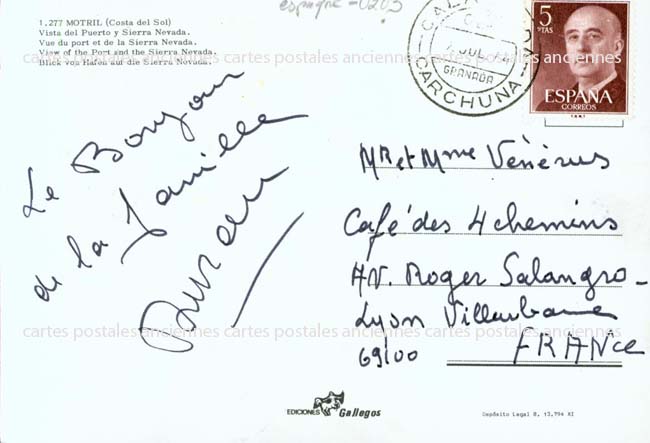 espagne-0203
1.277 MOTRIL (Costa del Sol)
Vista del Puerto y Sierra Nevada.
Vue du port et de la Sierra Nevada.
View of the Port and the Sierra Nevada.
Blick von Hafen auf die Sierra Nevada.
cartes postales anciennes cartes postales anciennes cartes postales anciennes
JUL
GRANADA
CARCHUNA
5
PTAS
ESPAÑA
CORREOS
Le Bonjour
de la famille
Mr et Mme Vénérus
Café des 4 chemins
AV. Roger Salangro
Lyon Villeurbanne
69100
FRANCE
cartes postales anciennes cartes postales anciennes cartes postales anciennes
EDICIONES Gallegos
Depósito Legal B. 13.794 XI